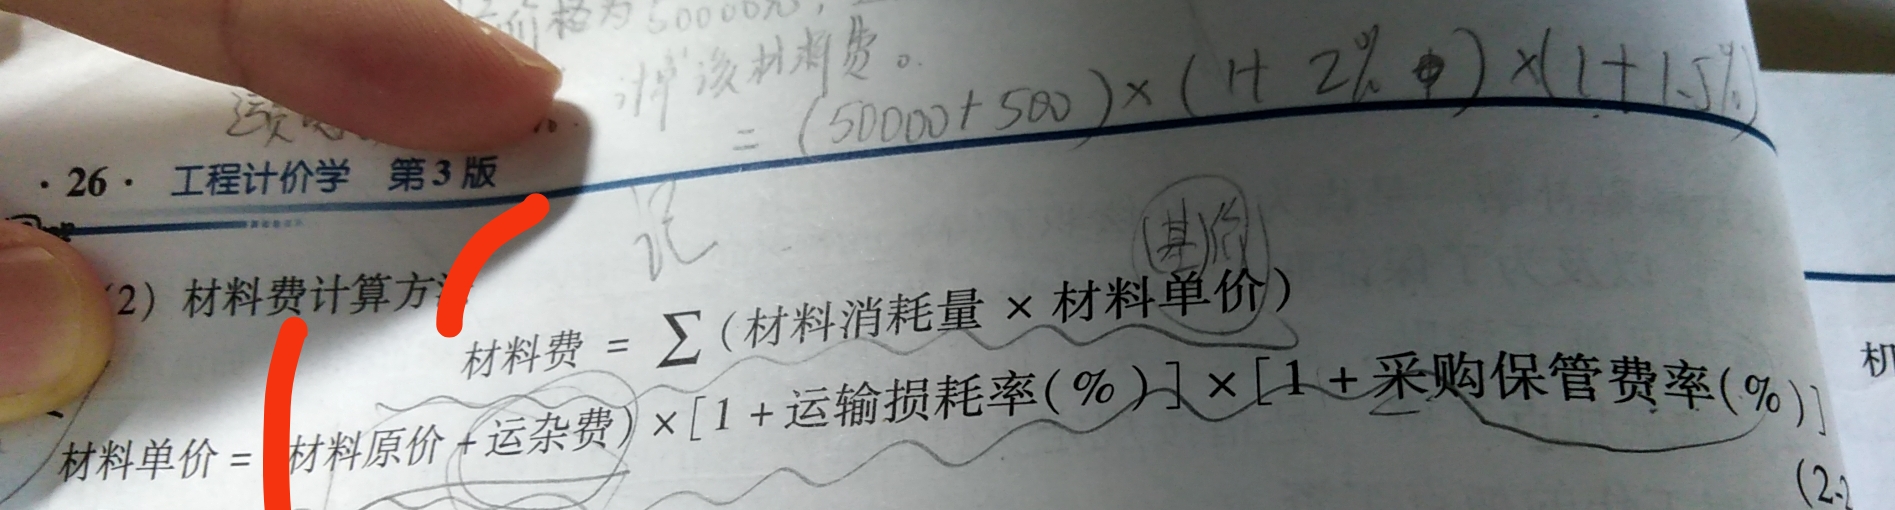 价格为50000元，
计算该材料费。
=(50000+500)×(1+2%)×(1+1.5%)
·26· 工程计价学 第3版
记
(基)价
(2) 材料费计算方
材料费 = ∑(材料消耗量 × 材料单价)
材料单价 = 材料原价 + 运杂费) × [1 + 运输损耗率(%)] × [1 + 采购保管费率(%)]
(2-2
机